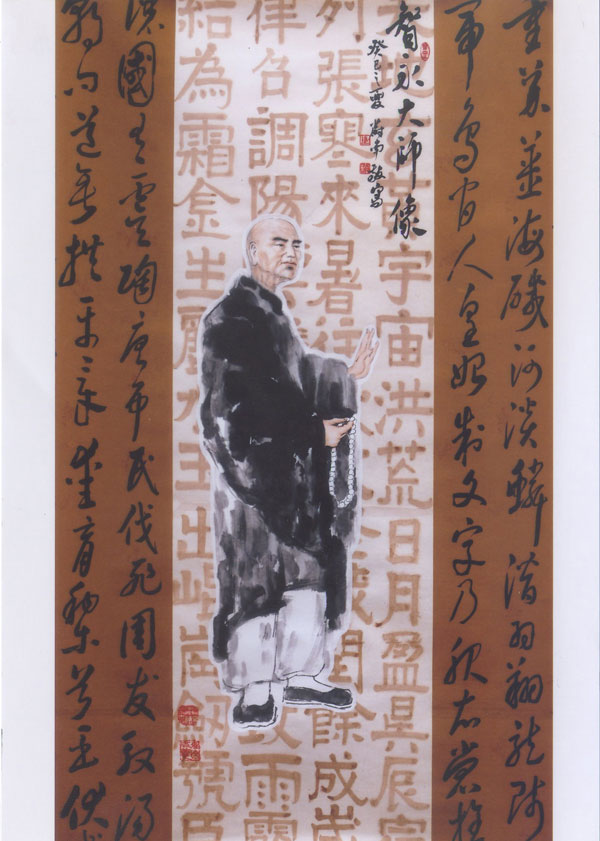 重芥薑海醎河淡鱗潛羽翔龍師
帝鳥官人皇始制文字乃服衣裳推
智永大師像
癸巳之夏
地
宇宙洪荒日月盈昃辰宿
列張寒來暑往
藏閏餘成歲
律吕調陽
致雨露
結為霜金生麗水玉出崑崗劒號巨
讓國有虞陶唐弔民伐罪周發殷湯
朝問道垂拱平章愛育黎首臣伏